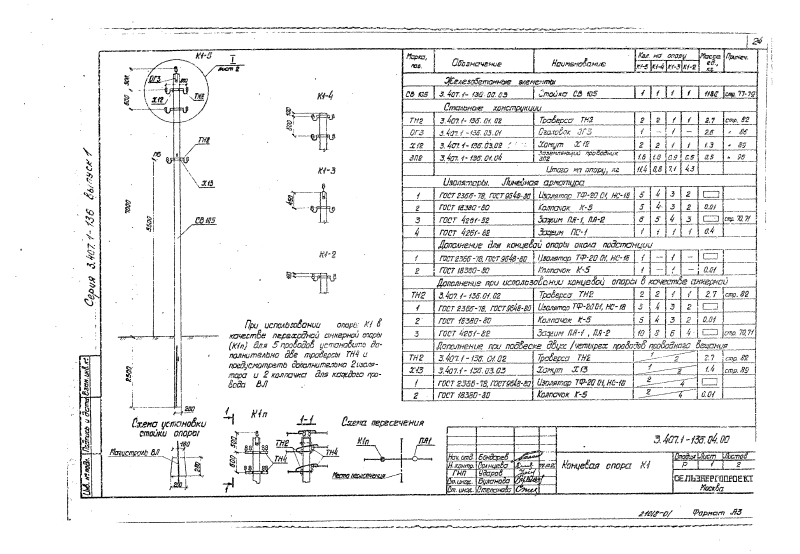 26
Серия 3.407.1-136 Выпуск 1
К1-5
I
лист 2
ОГ3
Х12
ТН2
ТН2
Х13
СВ 105
К1-4
К1-3
К1-2
При использовании опоры К1 в
качестве переходной анкерной опоры
(К1п) для 5 проводов установить до-
полнительно две траверсы ТН4 и
предусмотреть дополнительно 2 изоля-
тора и 2 колпачка для каждого про-
вода ВЛ
7000
5500
2500
280
Схема установки
стойки опоры
Магистраль ВЛ
180
280
К1п
1-1
ТН2
ТН4
ТН4
Схема пересечения
К1п
ПА1
Место пересечения
Марка, поз.
Обозначение
Наименование
Кол. на опору
К1-5 К1-4 К1-3 К1-2
Масса ед., кг
Примеч.
Железобетонные элементы
СВ 105 3.407.1-136.00.03 Стойка СВ 105 1 1 1 1 1180 стр. 77-79
Стальные конструкции
ТН2 3.407.1-136.01.02 Траверса ТН2 2 2 1 1 2.7 стр. 82
ОГ3 3.407.1-136.03.01 Оголовок ОГ3 1 - 1 - 2.6 " 86
Х12 3.407.1-136.03.02 Хомут Х12 2 2 1 1 1.3 " 89
ЗП2 3.407.1-136.01.04 Заземляющий проводник ЗП2
Итого на опору, кг 11.4 8.8 7.1 4.3
Изоляторы. Линейная арматура
1 ГОСТ 2366-78, ГОСТ 9648-80 Изолятор ТФ-20 01, НС-16 5 4 3 2
2 ГОСТ 18380-80 Колпачок К-5 5 4 3 2 0.01
3 ГОСТ 4261-82 Зажим ПА-1, ПА-2 6 5 4 3 стр. 70,71
4 ГОСТ 4261-82 Зажим ПС-1 1 1 1 1 0.4
Дополнение для концевой опоры около подстанции
1 ГОСТ 2366-78, ГОСТ 9648-80 Изолятор ТФ-20 01, НС-16 1 - 1 -
2 ГОСТ 18380-80 Колпачок К-5 1 - 1 - 0.01
Дополнение при использовании концевой опоры в качестве анкерной
ТН2 3.407.1-136.01.02 Траверса ТН2 2 2 1 1 2.7 стр. 82
1 ГОСТ 2366-78, ГОСТ 9648-80 Изолятор ТФ-20 01, НС-16 5 4 3 2
2 ГОСТ 18380-80 Колпачок К-5 5 4 3 2 0.01
3 ГОСТ 4261-82 Зажим ПА-1, ПА-2 10 8 6 4 стр. 70,71
Дополнение при подвеске двух/четырех проводов проводного вещания
ТН2 3.407.1-136.01.02 Траверса ТН2 1 2 2.7 стр. 82
Х13 3.407.1-136.03.03 Хомут Х13 1 2 1.4 стр. 89
1 ГОСТ 2366-78, ГОСТ 9648-80 Изолятор ТФ-20 01, НС-16 2 4
2 ГОСТ 18380-80 Колпачок К-5 2 4 0.01
3.407.1-136.04.00
Нач. отд. Бондарев
Н. контр. Солнцева
ГИП Ударов
Ст. инж. Буланова
Ст. инж. Степанова
Концевая опора К1
Стадия Лист Листов
Р 1 2
СЕЛЬЭНЕРГОПРОЕКТ
Москва
Инв. № подл. Подпись и дата Взам. инв. №
Формат А3